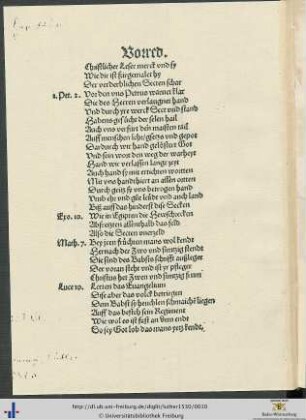 Vorred.
Christlicher Leser merck vnd sy
Wie dir ist fürgemalet hy
Der verderblichen Secten schar
1. Pet. 2. Vor den vns Petrus warnet klar
Die des Herren verlaugnet hand
Vnd durch yre werck Seer vnd stand
gesücht der selen hail
Auch vns verfürt den maisten tail
Auff menschen lehr gsetz vnd gepot
Da durch wir hand gelöstert Got
Vnd sein wort den weg der warheyt
Hand wir verlassen lange zeyt
Auch hand sy mit erdichten worten
Mit vns handthiert an allen orten
Durch geitz sy vns betrogen hand
Vmb ehr vnd güt leüt vnd auch land
Biß auff das hinderst dise Secken
Exo. 10. Wie in Egipten die Hewschrecken
alles das feld
Also die Secten vnser geld
Math. 7. Bey jren früchten mans wol kendt
Hernach der Zwen vnd sintzig stendt
Die sind des Babsts schrifft außleger
Der voran steht vnd ist yr pfleger
Christus het Zwen vnd sintzig
Luce 10. Lerten das Euangelium
Dise aber das volck betriegen
Dem Babst liegen
Auff das besteh sein Regiment
Wie wol es ist fast am end
So sey Got lob das mans yetz kendt,
http://dl.ub.uni-freiburg.de/diglit/luther1530/0010
© Universitätsbibliothek Freiburg